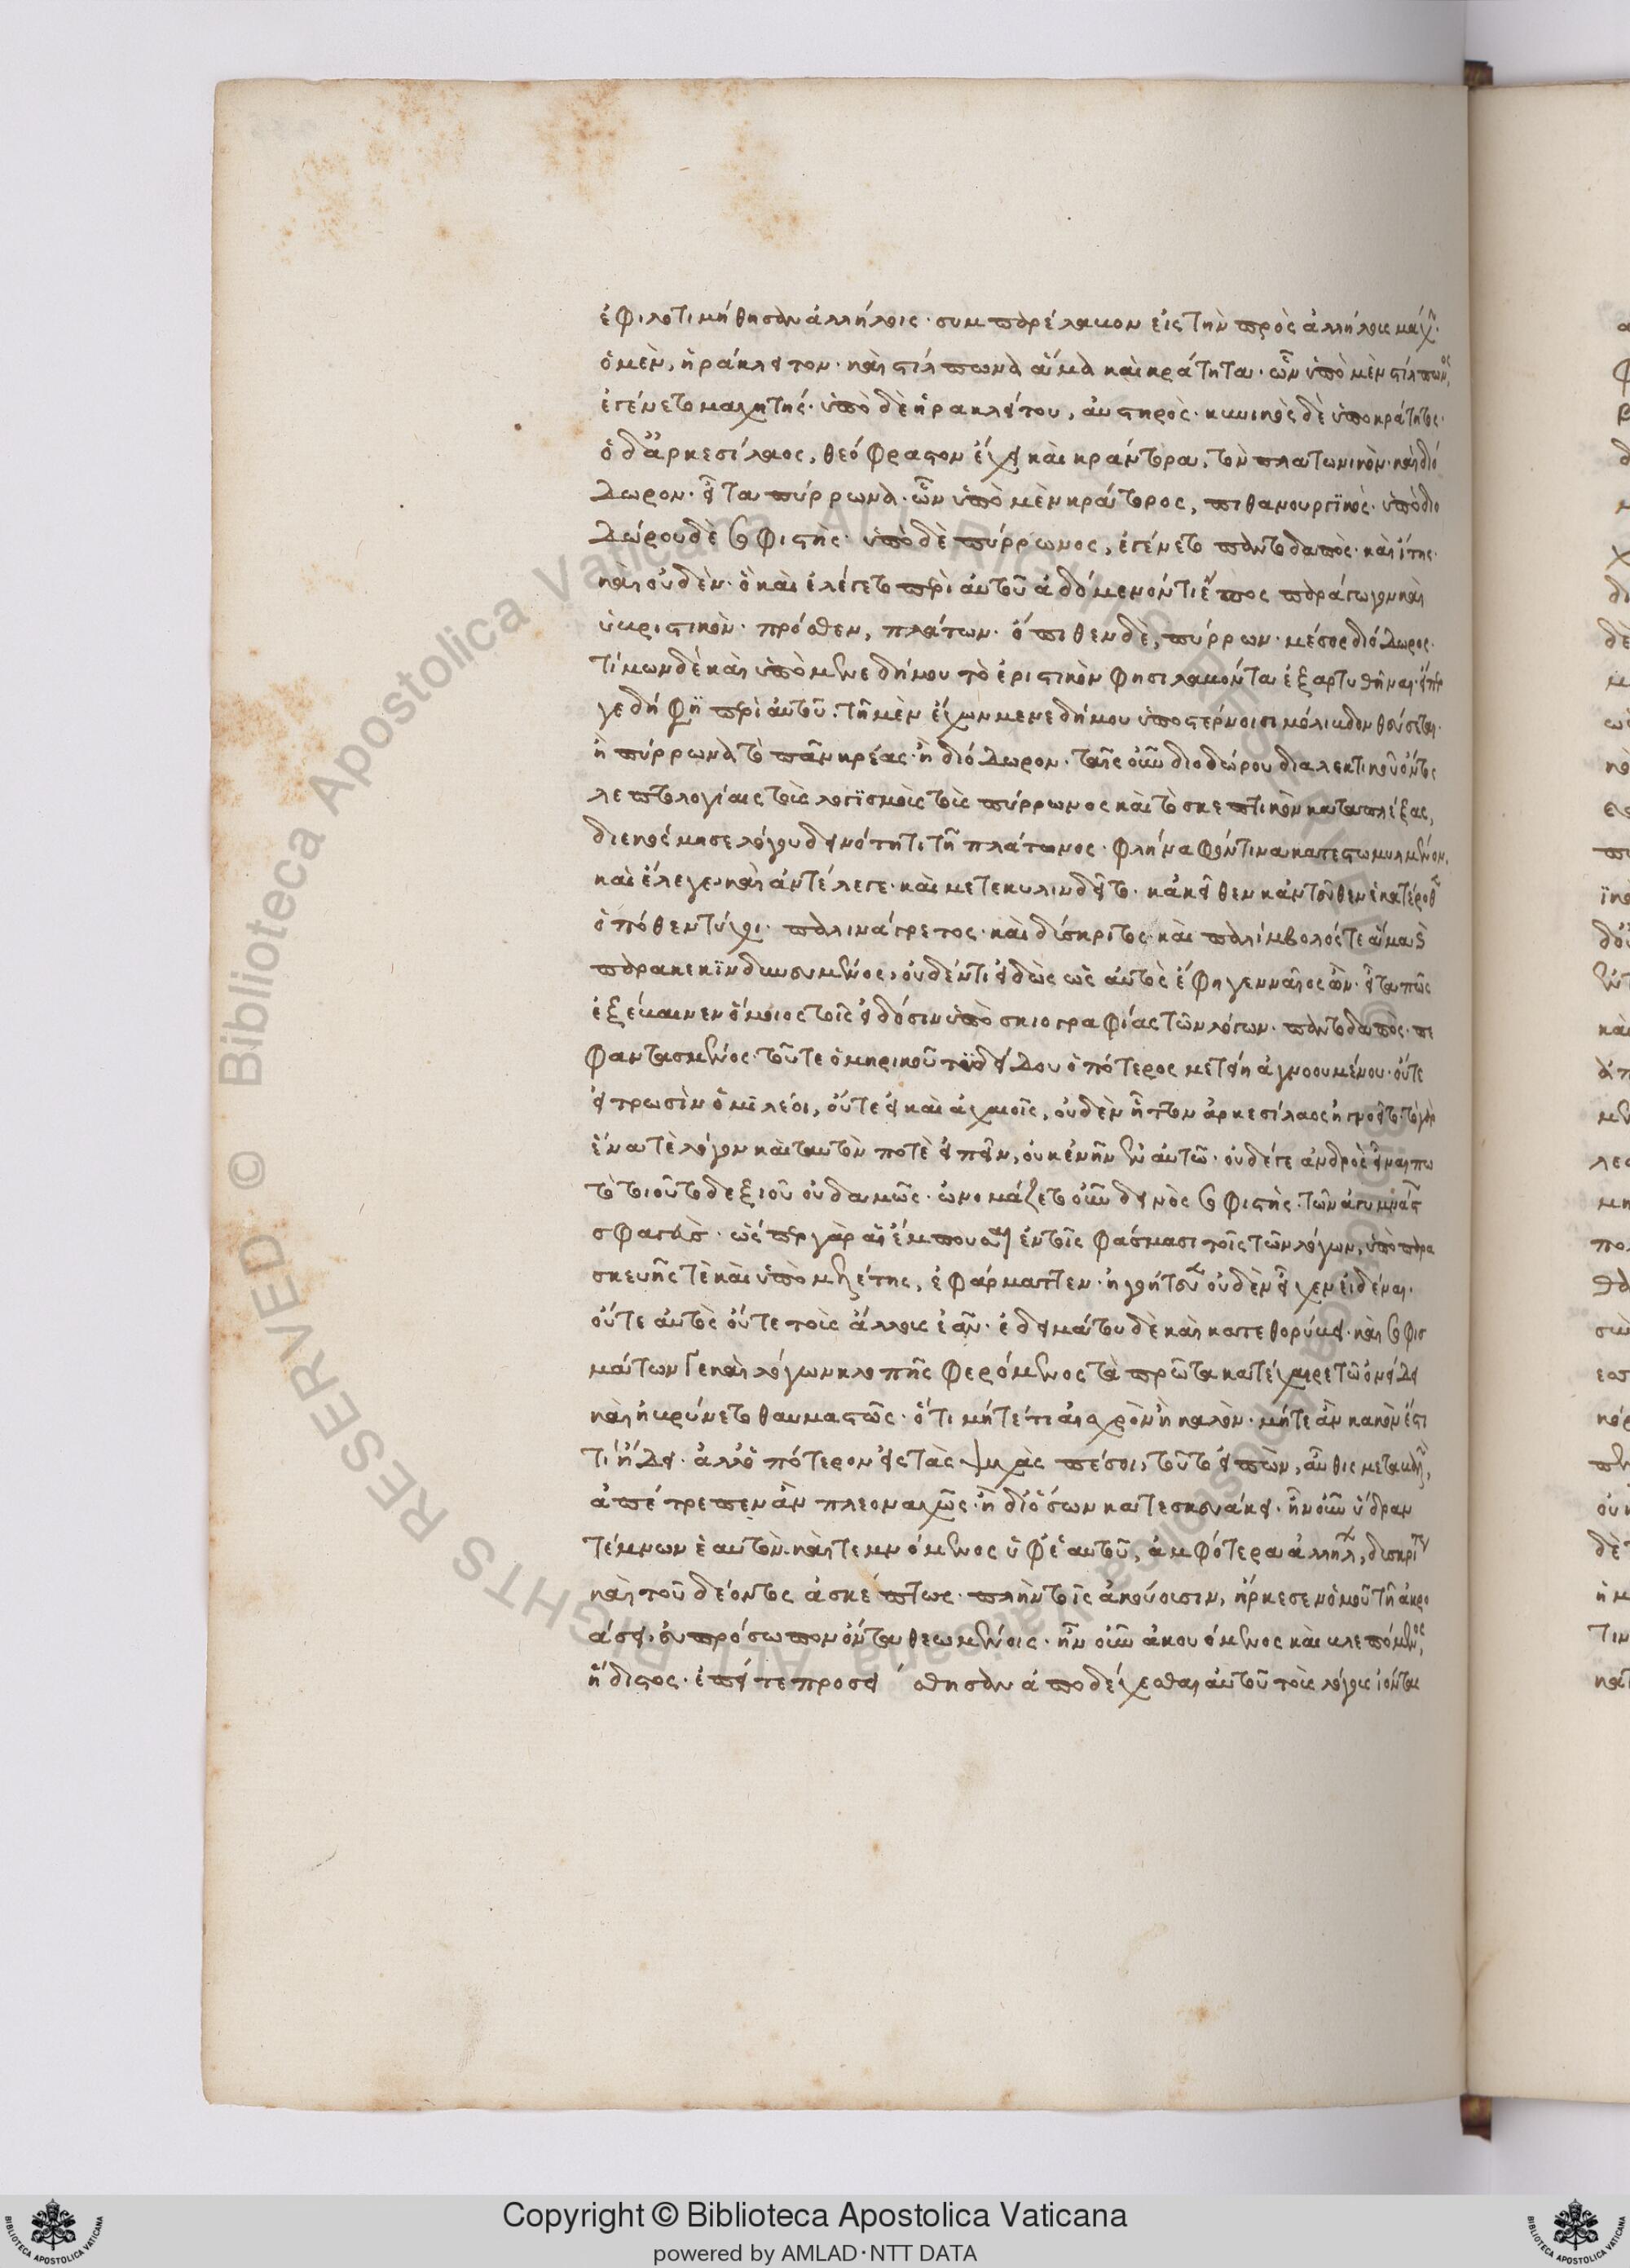 ἐφιλοτιμήθησαν ἀλλήλοις· συμπαρέλαβον εἰς τὴν πρὸς ἀλλήλους μάχην·
ὁ μὲν, ἡράκλειτον· καὶ στίλπωνα ἅμα καὶ κράτητα· ὧν ὑπὸ μὲν στίλπωνος,
ἐγένετο μαχητής· ὑπὸ δὲ ἡρακλείτου, αὐστηρὸς· κυνικὸς δὲ ὑπὸ κράτητος·
ὁ δ' ἀρκεσίλαος, θεόφραστον ἔχει καὶ κράντορα, τὸν πλατωνικὸν· καὶ διό
δωρον· εἶτα πύρρωνα· ὧν ὑπὸ μὲν κράντορος, πιθανουργϊκὸς· ὑπὸ διο
δώρου δὲ σοφιστὴς· ὑπὸ δὲ πύρρωνος, ἐγένετο παντοδαπὸς· καὶ ἴτης·
καὶ οὐδὲν· ὃ καὶ ἐλέγετο περὶ αὐτοῦ ἀδόμενόν τι ἔπος παράγωγον καὶ
ὑβριστικὸν· πρόσθεν, πλάτων· ὄπιθεν δὲ, πύρρων· μέσος διόδωρος·
τίμων δὲ καὶ ὑπὸ μενεδήμου τὸ ἐριστικὸν φησι λαβόντα ἐξαρτυθῆναι· εἴπερ
γε δή φη περὶ αὐτοῦ· τῆ μὲν ἔχων μενεδήμου ὑπὸ στέρνοισι μόλιβδον θεύσεται·
ἢ πύρρωνα τὸ πᾶν κρέας· ἢ διόδωρον· ταῖς οὖν διοδώρου διαλεκτικοῦ ὄντος
λεπτολογίαις τοὺς λογϊσμοὺς τοὺς πύρρωνος καὶ τὸ σκεπτικὸν καταπλέξας,
διεκόσμησε λόγου δεινότητι τῆ πλάτωνος· φλήναφόν τινα κατεστωμυλμένον,
καὶ ἔλεγε· καὶ ἀντέλεγε· καὶ μετεκυλινδεῖτο· κἀκεῖθεν κἀντεῦθεν ἑκατέρωθεν
ὁπόθεν τύχοι· παλινάγρετος· καὶ δύσκριτος· καὶ παλίμβολός τε ἅμα καὶ
παρακεκϊνδυνευμένος· οὐδέν τι εἰδὼς ὡς αὐτὸς ἔφη γενναῖος ὢν· εἶτα πῶς
ἐξέβαινεν ὅμοιος τοῖς εἰδόσιν ὑπὸ σκιογραφίας τῶν λόγων· παντοδαπὸς· πε
φαντασμένος· τοῦ τε ὁμηρικοῦ τυδείδου ὁπότερος μετείη ἀγνοουμένου· οὔτε
εἰ τρωσὶν ὁμϊλέοι, οὔτε εἰ καὶ ἀχαιοῖς, οὐδὲν ἧττον ἀρκεσίλαος ἠγνοεῖτο· τὸ γὰρ
ἕνα τὲ λόγον καὶ ταὐτὸν ποτὲ εἰπεῖν, οὐκ ἐνῆν ἐν αὐτῶ· οὐδέ γε ἀνδρὸς εἶναι πω
τὸ τοιοῦτο δεξιοῦ οὐδαμῶς· ὠνομάζετο οὖν δεινὸς σοφιστὴς· τῶν ἀγυμνάστων
σφαγεὺς· ὥσπερ γὰρ αἱ ἔμπουσαι ἐν τοῖς φάσμασι τοῖς τῶν λόγων, ὑπὸ παρα
σκευῆς τὲ καὶ ὑπὸ μελέτης, ἐφάρματτεν· ἐγοήτευεν οὐδὲν εἶχεν εἰδέναι·
οὔτε αὐτὸς οὔτε τοὺς ἄλλους ἐᾶν· ἐδειμάτου δὲ καὶ κατεθορύβει· καὶ σοφισ
μάτων γε καὶ λόγων κλοπῆς φερόμενος τὰ πρῶτα κατέχαιρε τῶ ὀνείδει
καὶ ἡβρύνετο θαυμαστῶς· ὅτι μήτε τι αἰσχρὸν ἢ καλὸν· μήτε ἂν κακὸν ἐστι
τί ἤδει· ἀλλ' ὁπότερον εἰς τὰς ψυχὰς πέσοι, τοῦτο εἰπὼν, αὖθις μεταβαλὼν,
ἀπέτρεπεν ἂν πλεοναχῶς· ἢ δι' ὅσων κατεσκευάκει· ἦν οὖν ὕδραν
τέμνων ἑαυτὸν· καὶ τεμνόμενος ὑφ' ἑαυτοῦ, ἀμφότερα ἀλλήλων, δυσκρίτως
καὶ τοῦ δέοντος ἀσκέπτως· πλὴν τοῖς ἀκούουσιν, ἤρκεσεν ὁμοῦ τῆ ἀκρο
άσει, εὐπρόσωπον ὄντα θεωμένοις· ἦν οὖν ἀκουόμενος καὶ βλεπόμενος,
ἥδιστος· ἐπεί τε προσειθίσθησαν ἀποδέχεσθαι αὐτοῦ τοὺς λόγους ἰόντας